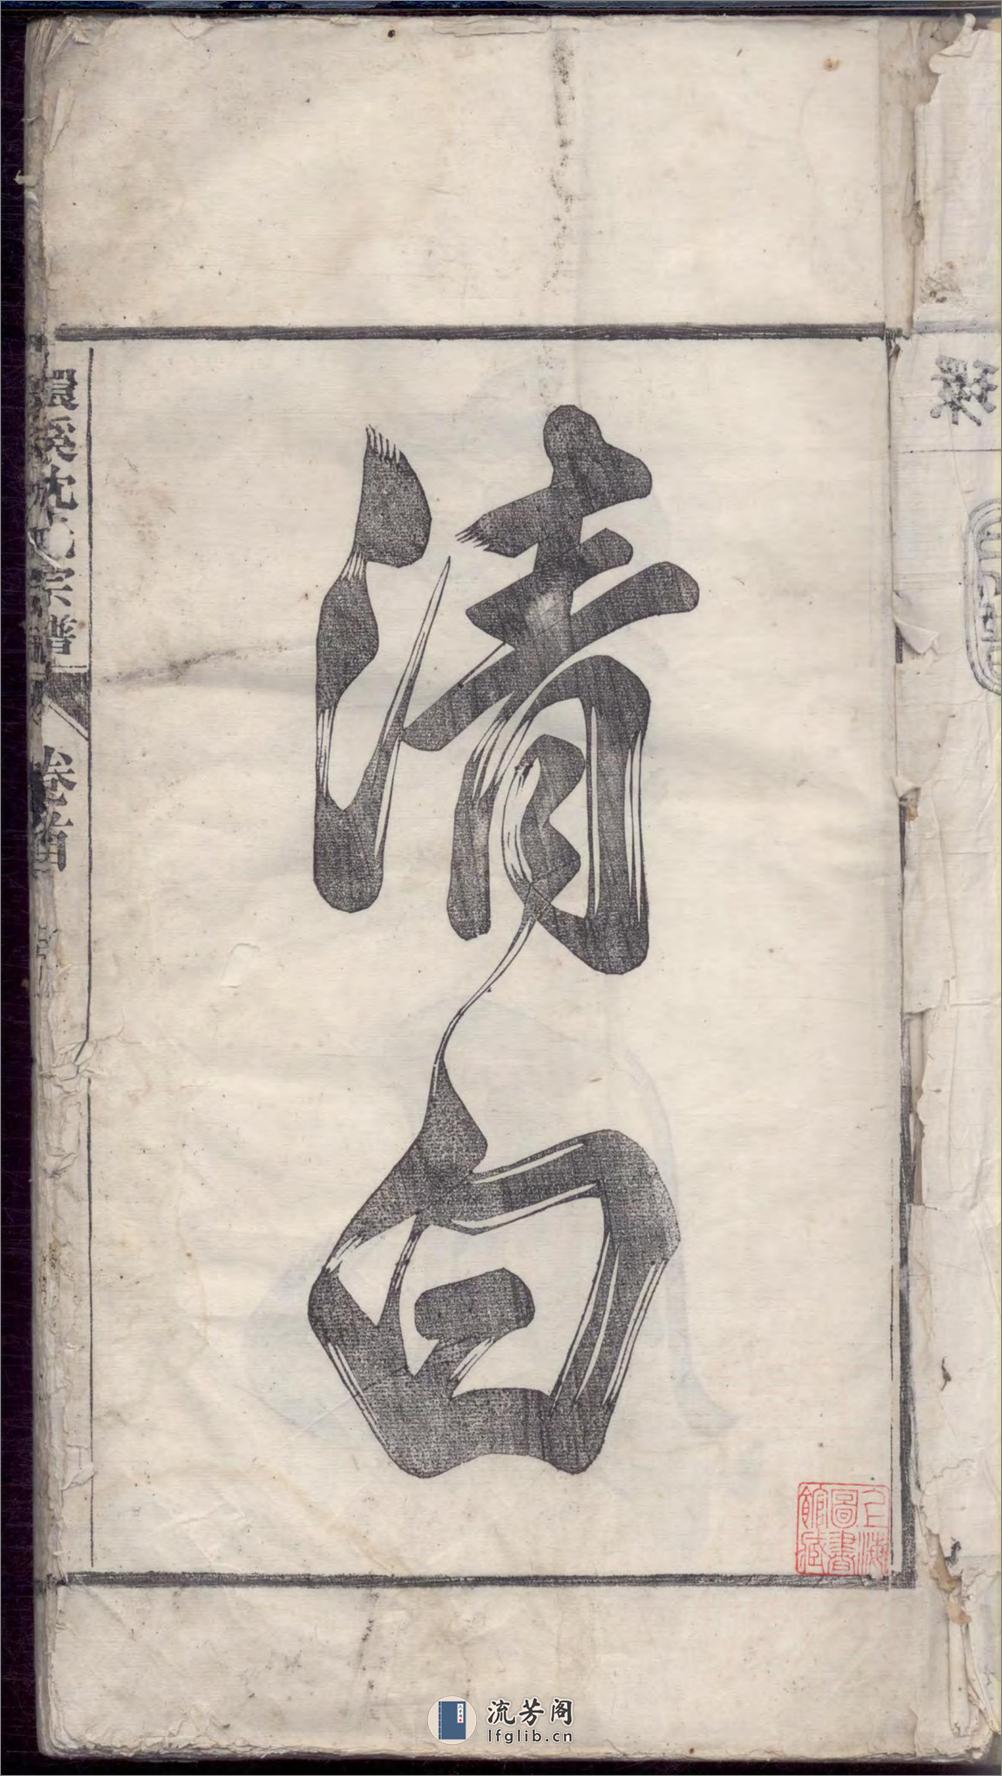 清白
溪沈氏宗譜
卷首
上海
圖書
館藏
流芳阁
lfglib.cn